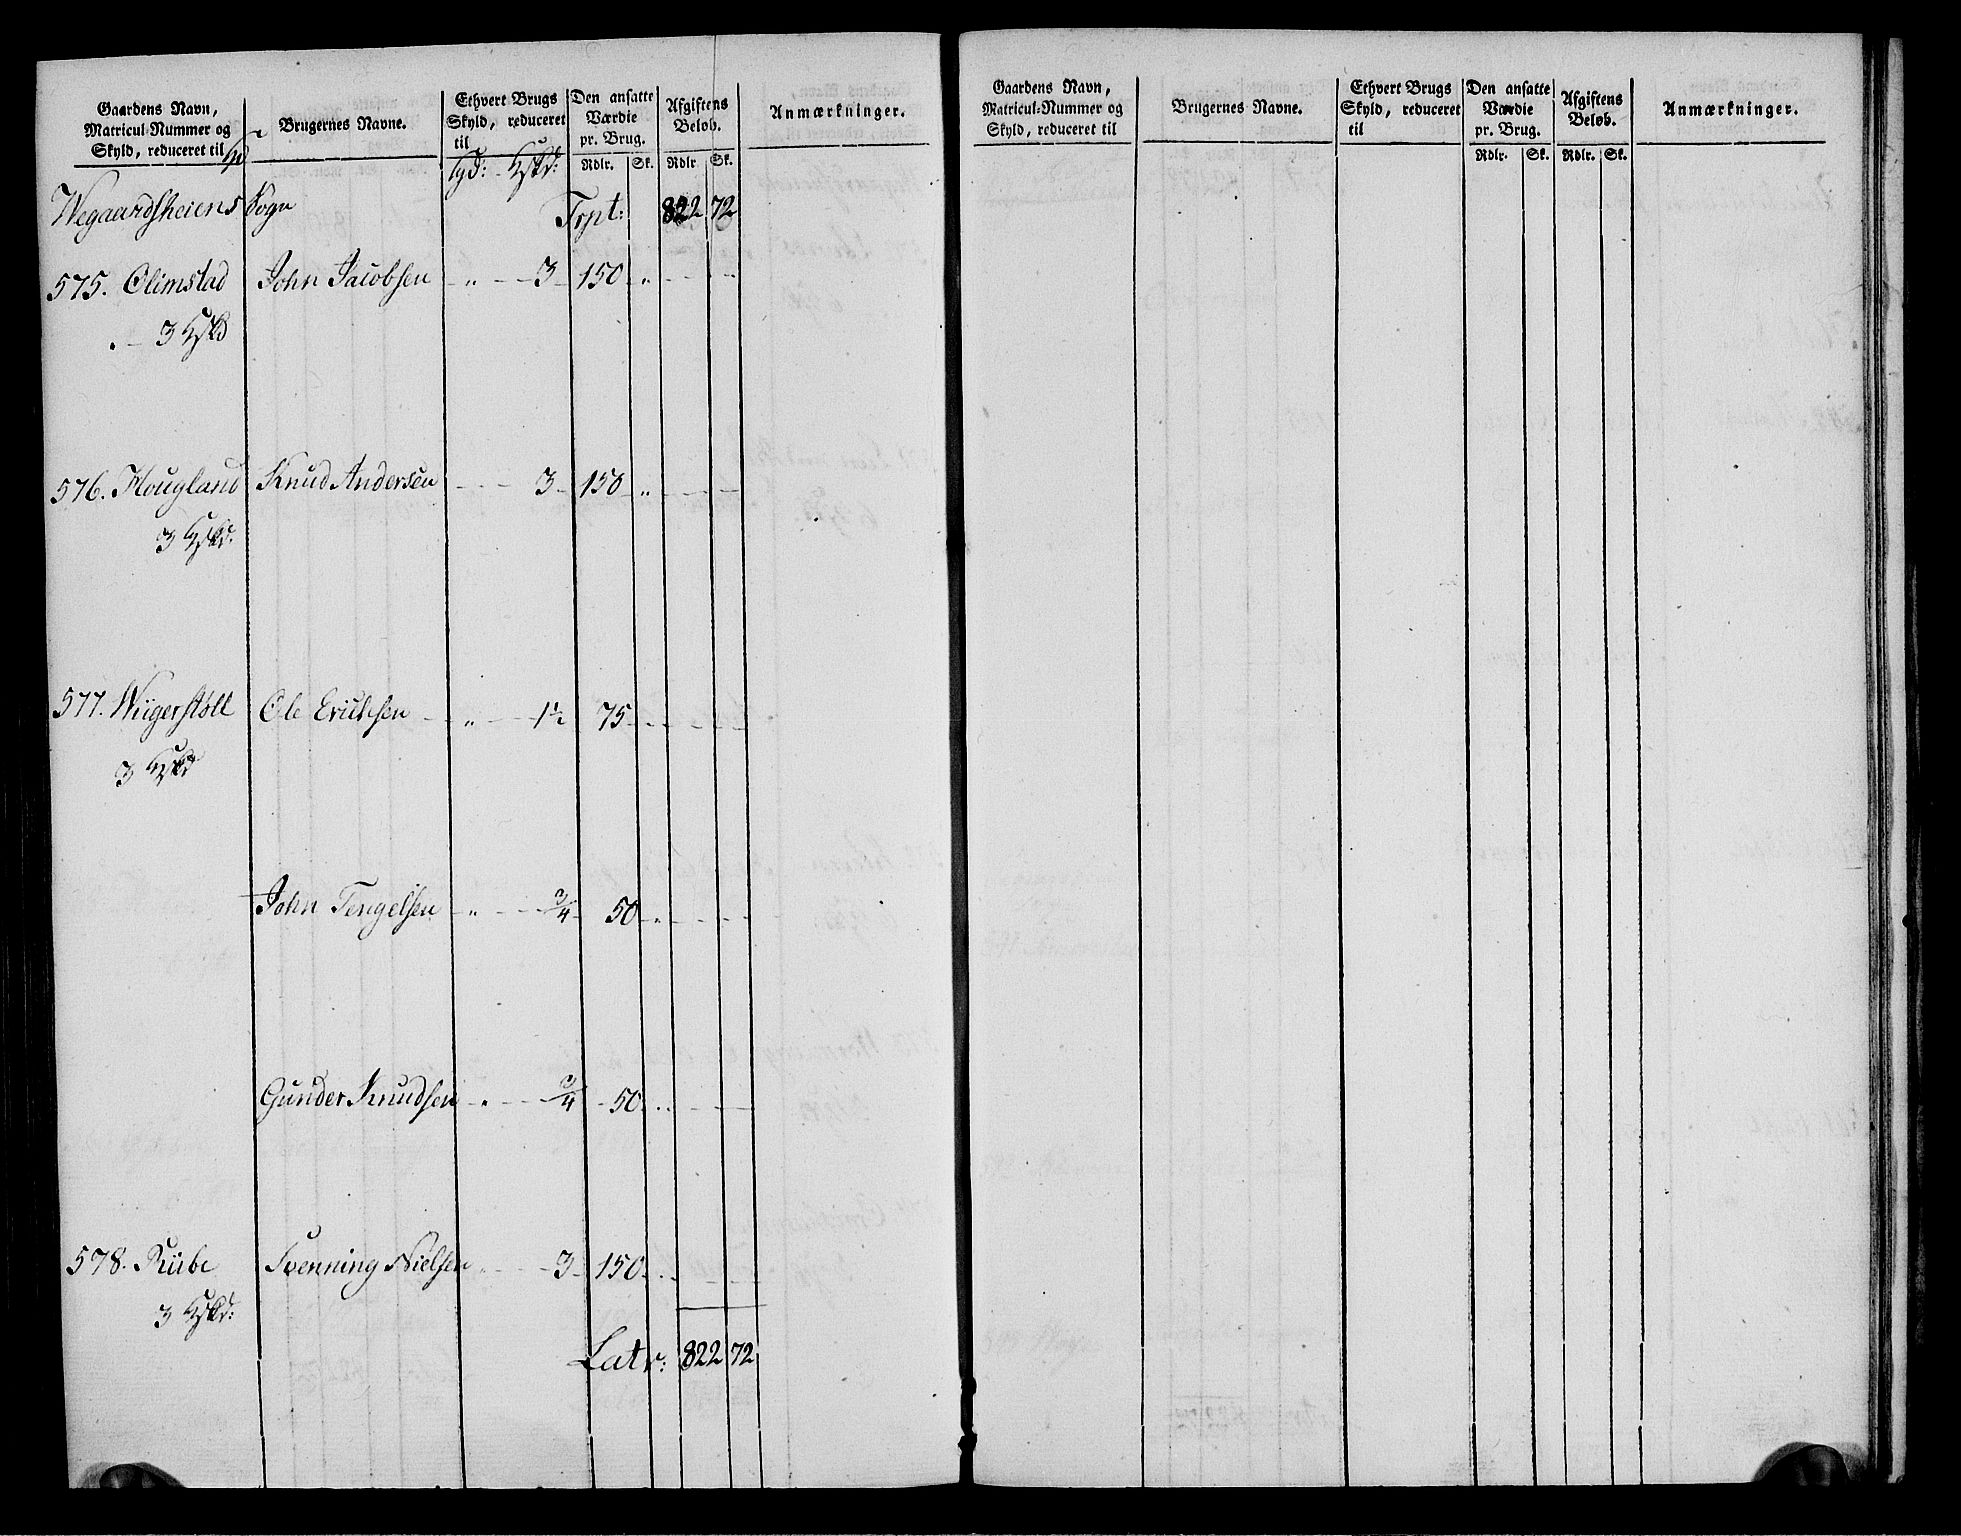 Gaardens Navn, Matricul-Nummer og Skyld, reduceret til | Brugernes Navne. | Ethvert Brugs Skyld, reduceret til | Den ansatte Værdie pr. Brug. | Afgiftens Beløb. | Anmærkninger.
Rdlr. Sk. Rdlr. Sk.
Wegaardsheiens Sogn Trpt: 822 72
575. Olimstad John Jacobsen " 3 150 "
3
576. Hougland Knud Andersen 3 150 "
3
577. Wiigerstøll Ole Erichsen " 1½ 75
3
John Tengelsen " ¾ 50 "
Gunder Knudsen " ¾ 50
578. Riibe Svenning Nielsen " 3 150
3
Latr: 822 72
Gaardens Navn, Matricul-Nummer og Skyld, reduceret til | Brugernes Navne. | Ethvert Brugs Skyld, reduceret til | Den ansatte Værdie pr. Brug. | Afgiftens Beløb. | Anmærkninger.
Rdlr. Sk. Rdlr. Sk.